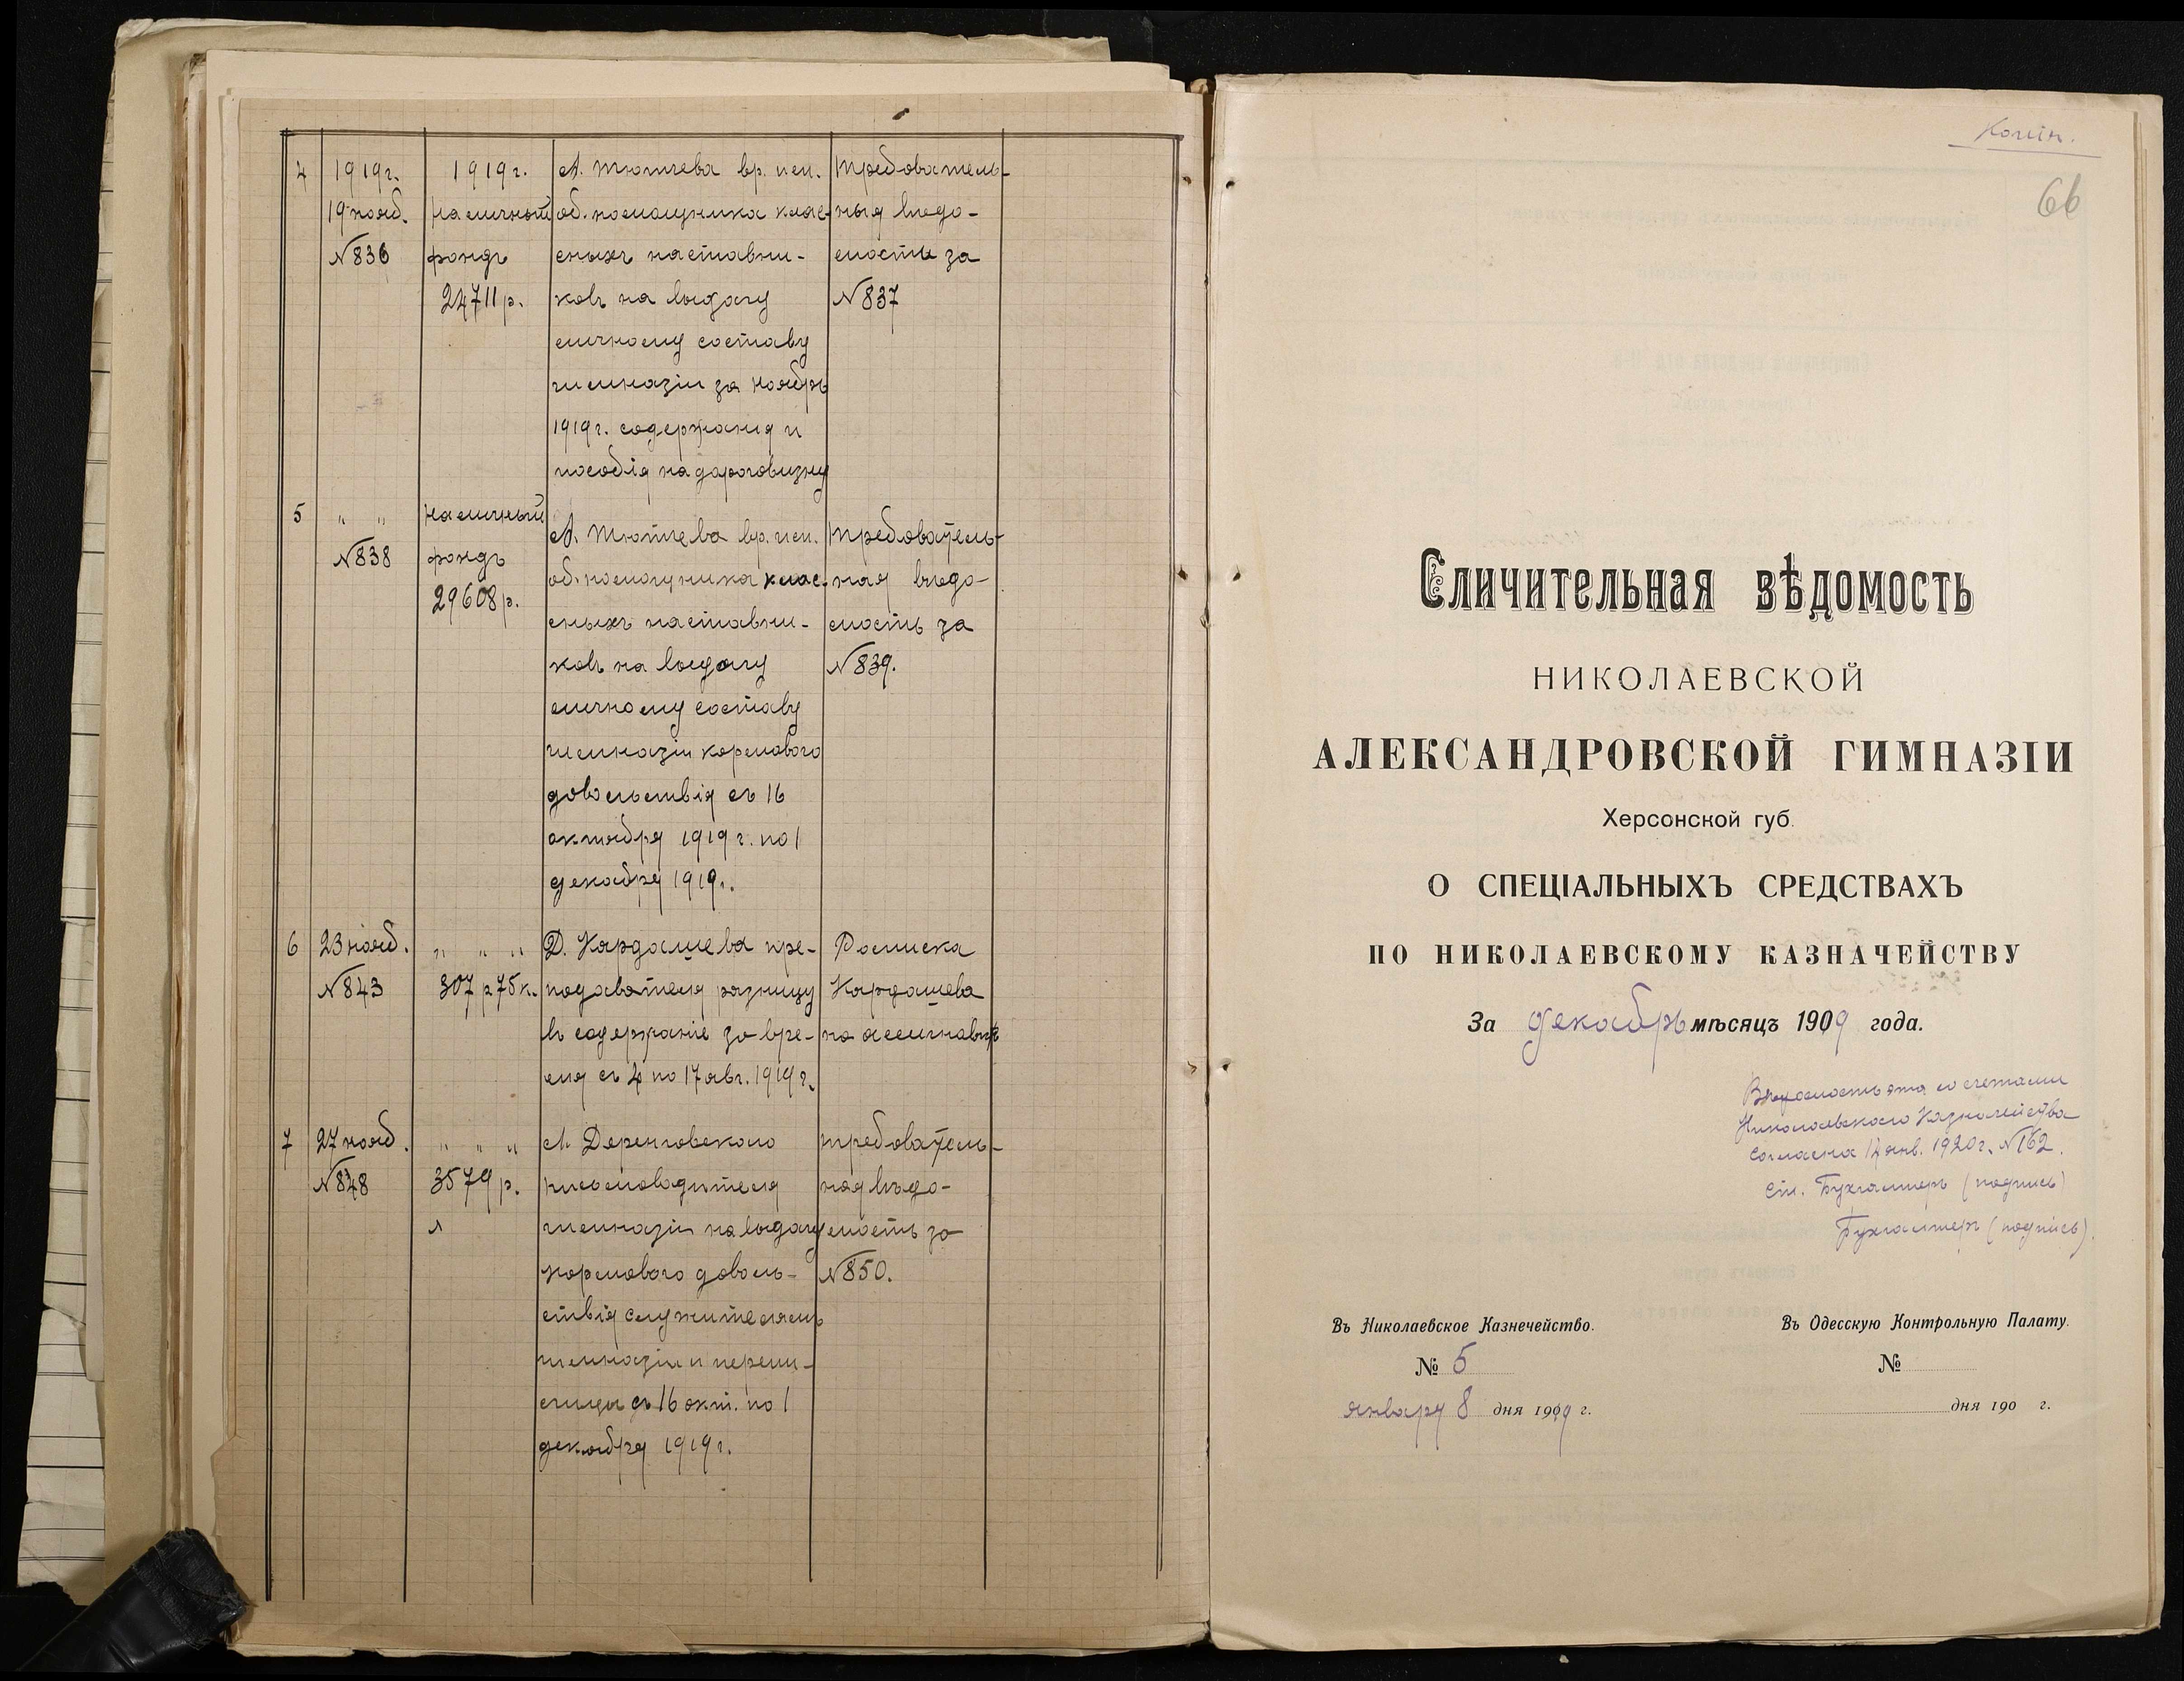 4
1919г.
19 нояб.
№836
1919г.
наличный
фондъ
24711р.
А. Тютчева вр. исп.
об. помощника клас-
сныхъ наставни-
ковъ на выдачу
личному составу
гимназіи за ноябрь
1919г. содержанія и
пособія на дороговизну
Требователь-
ныя вѣдо-
мости за
№837
5
" "
№838
наличный
фондъ
29608р.
А. Тютчева вр. исп.
об. помощника клас-
сныхъ наставни-
ковъ на выдачу
личному составу
гимназіи кормового
довольствія съ 16
октября 1919г. по 1
декабря 1919г.
Требователь-
ная вѣдо-
мость за
№839.
6
23 нояб.
№843
" " "
307 р 75к.
Д. Кардашева пре-
подавателя разницу
въ содержаніе за вре-
мя съ 4 по 17 авг. 1919г.
Росписка
Кардашева
на ассигновкѣ
7
27 нояб.
№848
" " "
3579 р.
письмоводителя
гимназіи на выдачу
кормового доволь-
ствія служителямъ
гимназіи и
съ 16 окт. по 1
декабря 1919г.
требователь-
ная вѣдо-
мость за
№850.
Копія.
66
Сличительная вѣдомость
НИКОЛАЕВСКОЙ
АЛЕКСАНДРОВСКОЙ ГИМНАЗІИ
Херсонской губ.
О СПЕЦІАЛЬНЫХЪ СРЕДСТВАХЪ
ПО НИКОЛАЕВСКОМУ КАЗНАЧЕЙСТВУ
За декабрь мѣсяцъ 1919 года.
Вѣдомость эта со счетами
Николаевского Казначейства
согласна 14 янв. 1920г. №162.
Ст. Бухгалтеръ (подпись)
Бухгалтеръ (подпись).
Въ Николаевское Казнечейство.
№ 5
января 8 дня 1919 г.
Въ Одесскую Контрольную Палату.
№
дня 190 г.